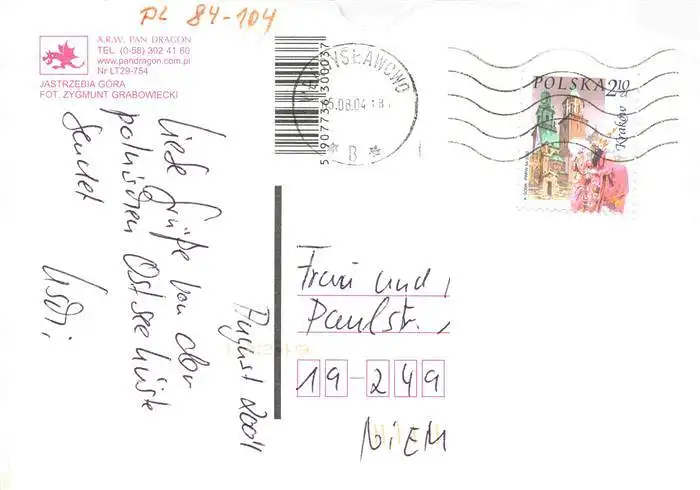 PL 84-104
A.R.W. PAN DRAGON
TEL (0-58) 302 41 60
www.pandragon.com.pl
Nr LT29-754
JASTRZEBIA GÓRA
FOT. ZYGMUNT GRABOWIECKI
5907736300037
5.08.04
* B *
POLSKA 2 10
Kraków zł
Liebe Grüße von der
polnischen Ostseeküste
sendet
Usch:
August 2004
Frau und
Paulstr.
19-249
NiEM